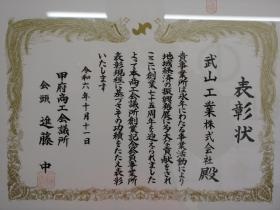 表彰状
武山工業株式会社殿
貴事業所は永年にわたる事業活動により
地域経済の振興発展に多大な貢献をされ
ここに創業七十五周年を迎えられました
よって本商工会議所創業記念会員事業所
表彰規程に基づきその功績をたたえ表彰
いたします
令和六年十月十一日
甲府商工会議所
会頭 進藤 中